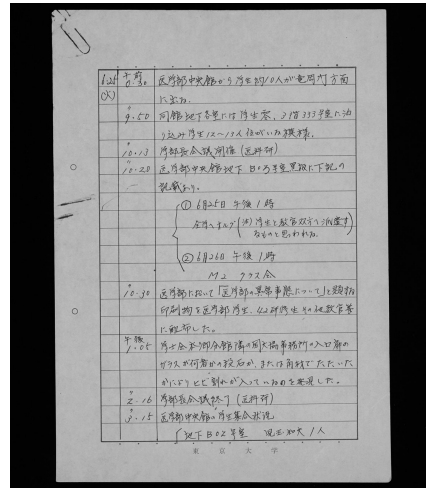 6.25 午前 0.30 医学部中央館から学生約10人が竜岡門方面
(火) に出た。
〃 9.50 同館地下各室には学生零、3階333号室に泊
り込み学生12～13人位がいた模様。
〃 10.13 学部長会議開催(医科研)
〃 10.20 医学部中央館地下 B03号室黒板に下記の
記載あり。
① 6月25日 午後1時
なものと思われる。
② 6月26日 午後1時
M2 クラス会
〃 10.30 医学部において「医学部の異常事態について」と題する
印刷物を医学部学生、研学生その他教官等
に配布した。
午後 1.05
ガラスが何者かの投石か、または角材でたたいた
かによりヒビ割れが入っているのを発見した。
〃 2.16 学部長会議終了(医科研)
〃 3.15 医学部中央館の学生集合状況
地下 B02号室 現在 和夫 1人
東京大学